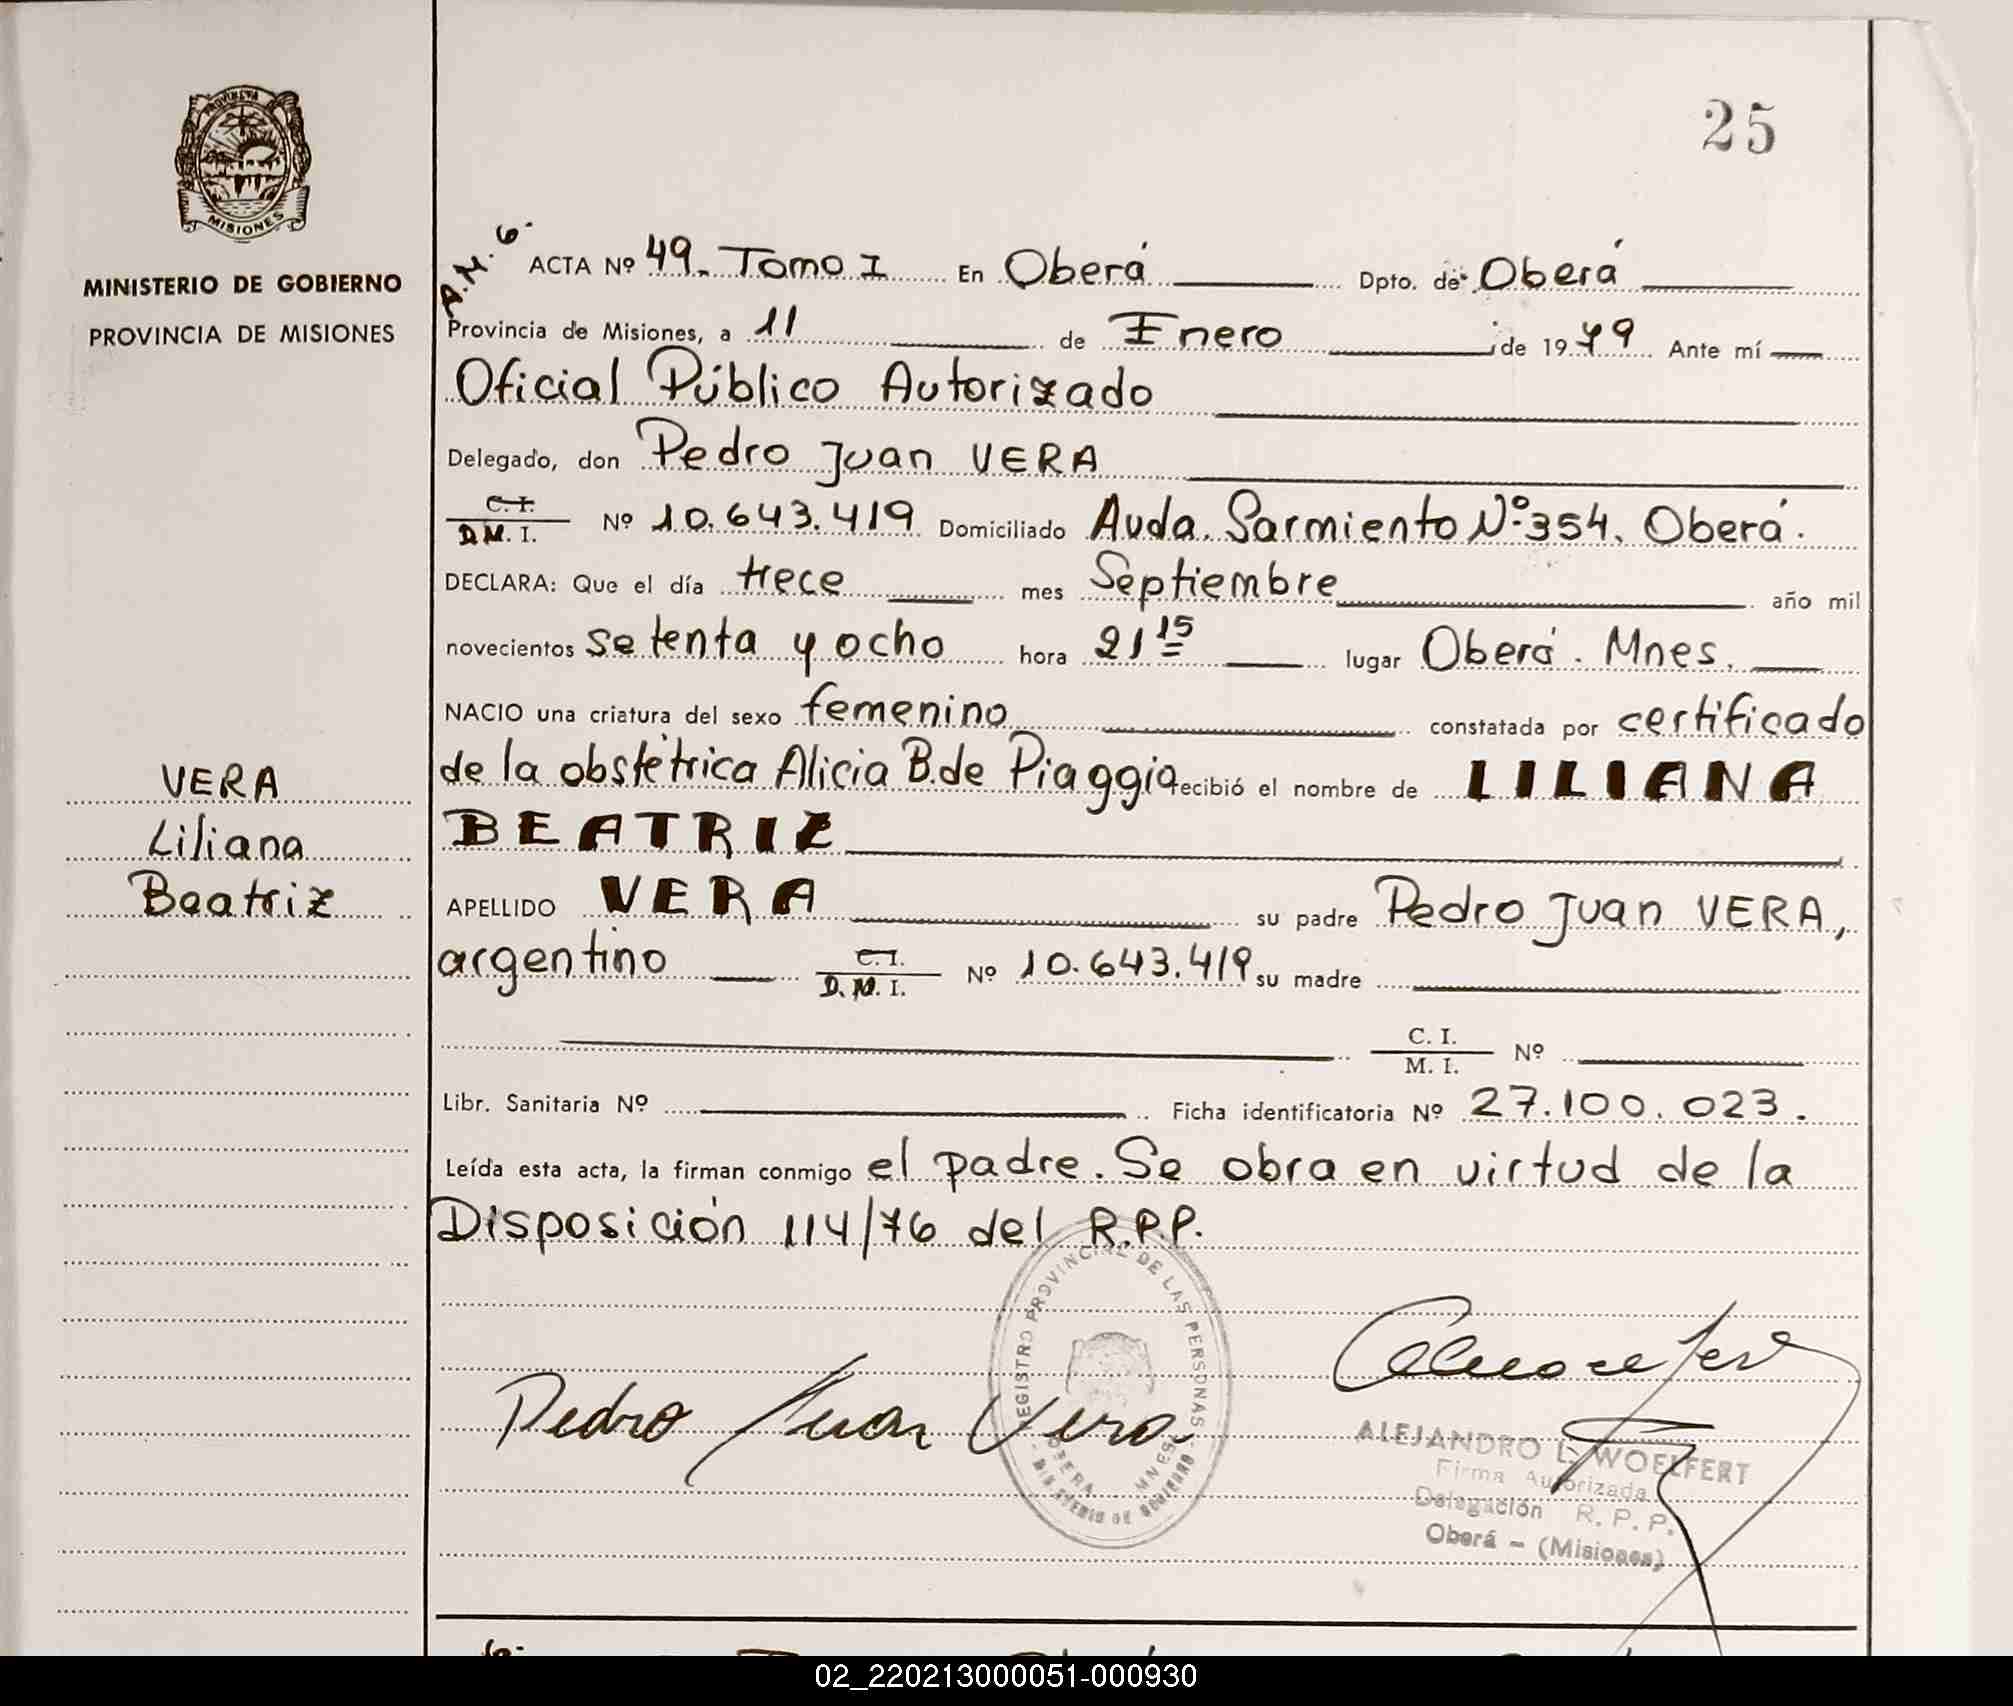 PROVINCIA
MISIONES
MINISTERIO DE GOBIERNO
PROVINCIA DE MISIONES
25
A.N. 6.
ACTA Nº 49. Tomo I En Oberá Dpto. de Oberá
Provincia de Misiones, a 11 de Enero de 1979 Ante mí
Oficial Público Autorizado
Delegado, don Pedro Juan VERA
C. I.
D M. I. Nº 10.643.419 Domiciliado Avda. Sarmiento Nº 354. Oberá.
DECLARA: Que el día trece mes Septiembre año mil
novecientos setenta y ocho hora 21 15 lugar Oberá. Mnes.
NACIO una criatura del sexo femenino constatada por certificado
de la obstétrica Alicia B. de Piaggio recibió el nombre de LILIANA
BEATRIZ
VERA
Liliana
Beatriz
APELLIDO VERA su padre Pedro Juan VERA,
argentino C. I.
D. M. I. Nº 10.643.419 su madre
C. I.
M. I. Nº
Libr. Sanitaria Nº Ficha identificatoria Nº 27.100.023.
Leída esta acta, la firman conmigo el padre. Se obra en virtud de la
Disposición 114/76 del R.P.P.
REGISTRO PROVINCIAL DE LAS PERSONAS
OBERA MNES
MINISTERIO DE GOBIERNO
Pedro Juan Vera
ALEJANDRO L. WOELFERT
Firma Autorizada
Delegación R. P. P.
Oberá - (Misiones)
02_220213000051-000930